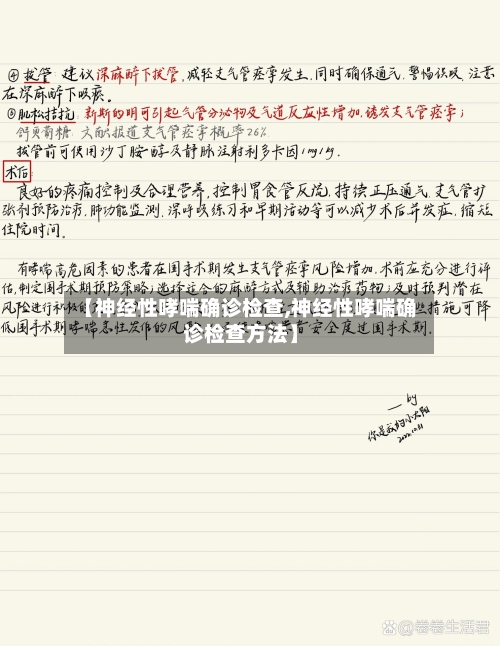 ④ 拔管: 建议深麻醉下拔管,减轻支气管痉挛发生,同时确保通气,警惕误吸,注意
在深麻醉下吸痰。
⑤ 肌松拮抗: 新斯的明可引起气管分泌物及气道反应性增加,诱发支气管痉挛;
舒更葡糖: 文献报道支气管痉挛概率2.6%
拔管前可使用沙丁胺醇及静脉注射利多卡因1mg/kg.
术后:
良好的疼痛控制及合理营养,控制胃食管反流,持续正压通气,支气管扩
张剂预防治疗,肺功能监测,深呼吸练习和早期活动等可以减少术后并发症,缩短
住院时间。
有哮喘高危因素的患者在围手术期发生支气管痉挛风险增加,术前应充分进行评
估,制定围手术期预防策略;选择适合的麻醉方式及辅助治疗药物;及时预判潜在
风险进行积极 措施可降
低围手术期哮喘急性发作的风 者安全度过围手术期.
【神经性哮喘确诊检查,神经性哮喘确
诊检查方法】
— by
你是我的小太阳